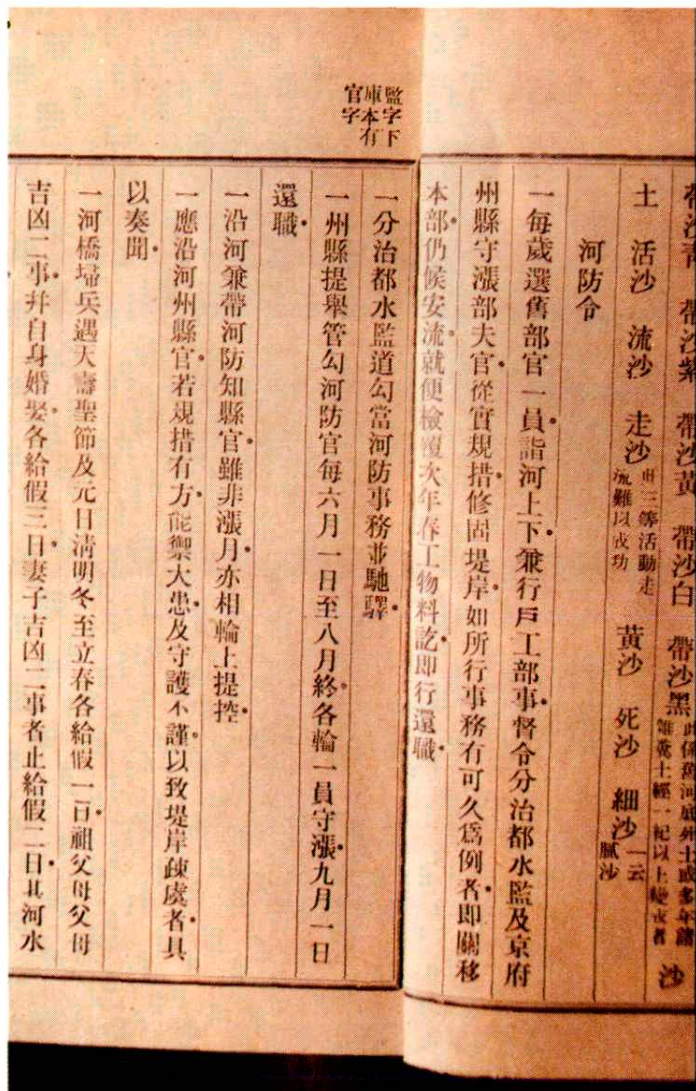 帶沙青　帶沙紫　帶沙黃　帶沙白　帶沙黑此係舊河底死土或多年諸雜糞土經一紀以上變成者　沙
土　活沙　流沙　走沙此三等活動走流難以成功　黃沙　死沙　細沙一云膩沙
河防令
一每歲選舊部官一員詣河上下兼行戶工部事督令分治都水監及京府
州縣守漲部夫官從實規措修固堤岸如所行事務有可久爲例者即關移
本部仍候安流就便檢覆次年春工物料訖即行還職
監字下
庫本有
官字
一分治都水監道勾當河防事務並馳驛
一州縣提舉管勾河防官每六月一日至八月終各輪一員守漲九月一日
還職
一沿河兼帶河防知縣官雖非漲月亦相輪上提控
一應沿河州縣官若規措有方能禦大患及守護不謹以致堤岸疎虞者具
以奏聞
一河橋埽兵遇天壽聖節及元日清明冬至立春各給假一日祖父母父母
吉凶二事幷自身婚娶各給假三日妻子吉凶二事者止給假二日其河水